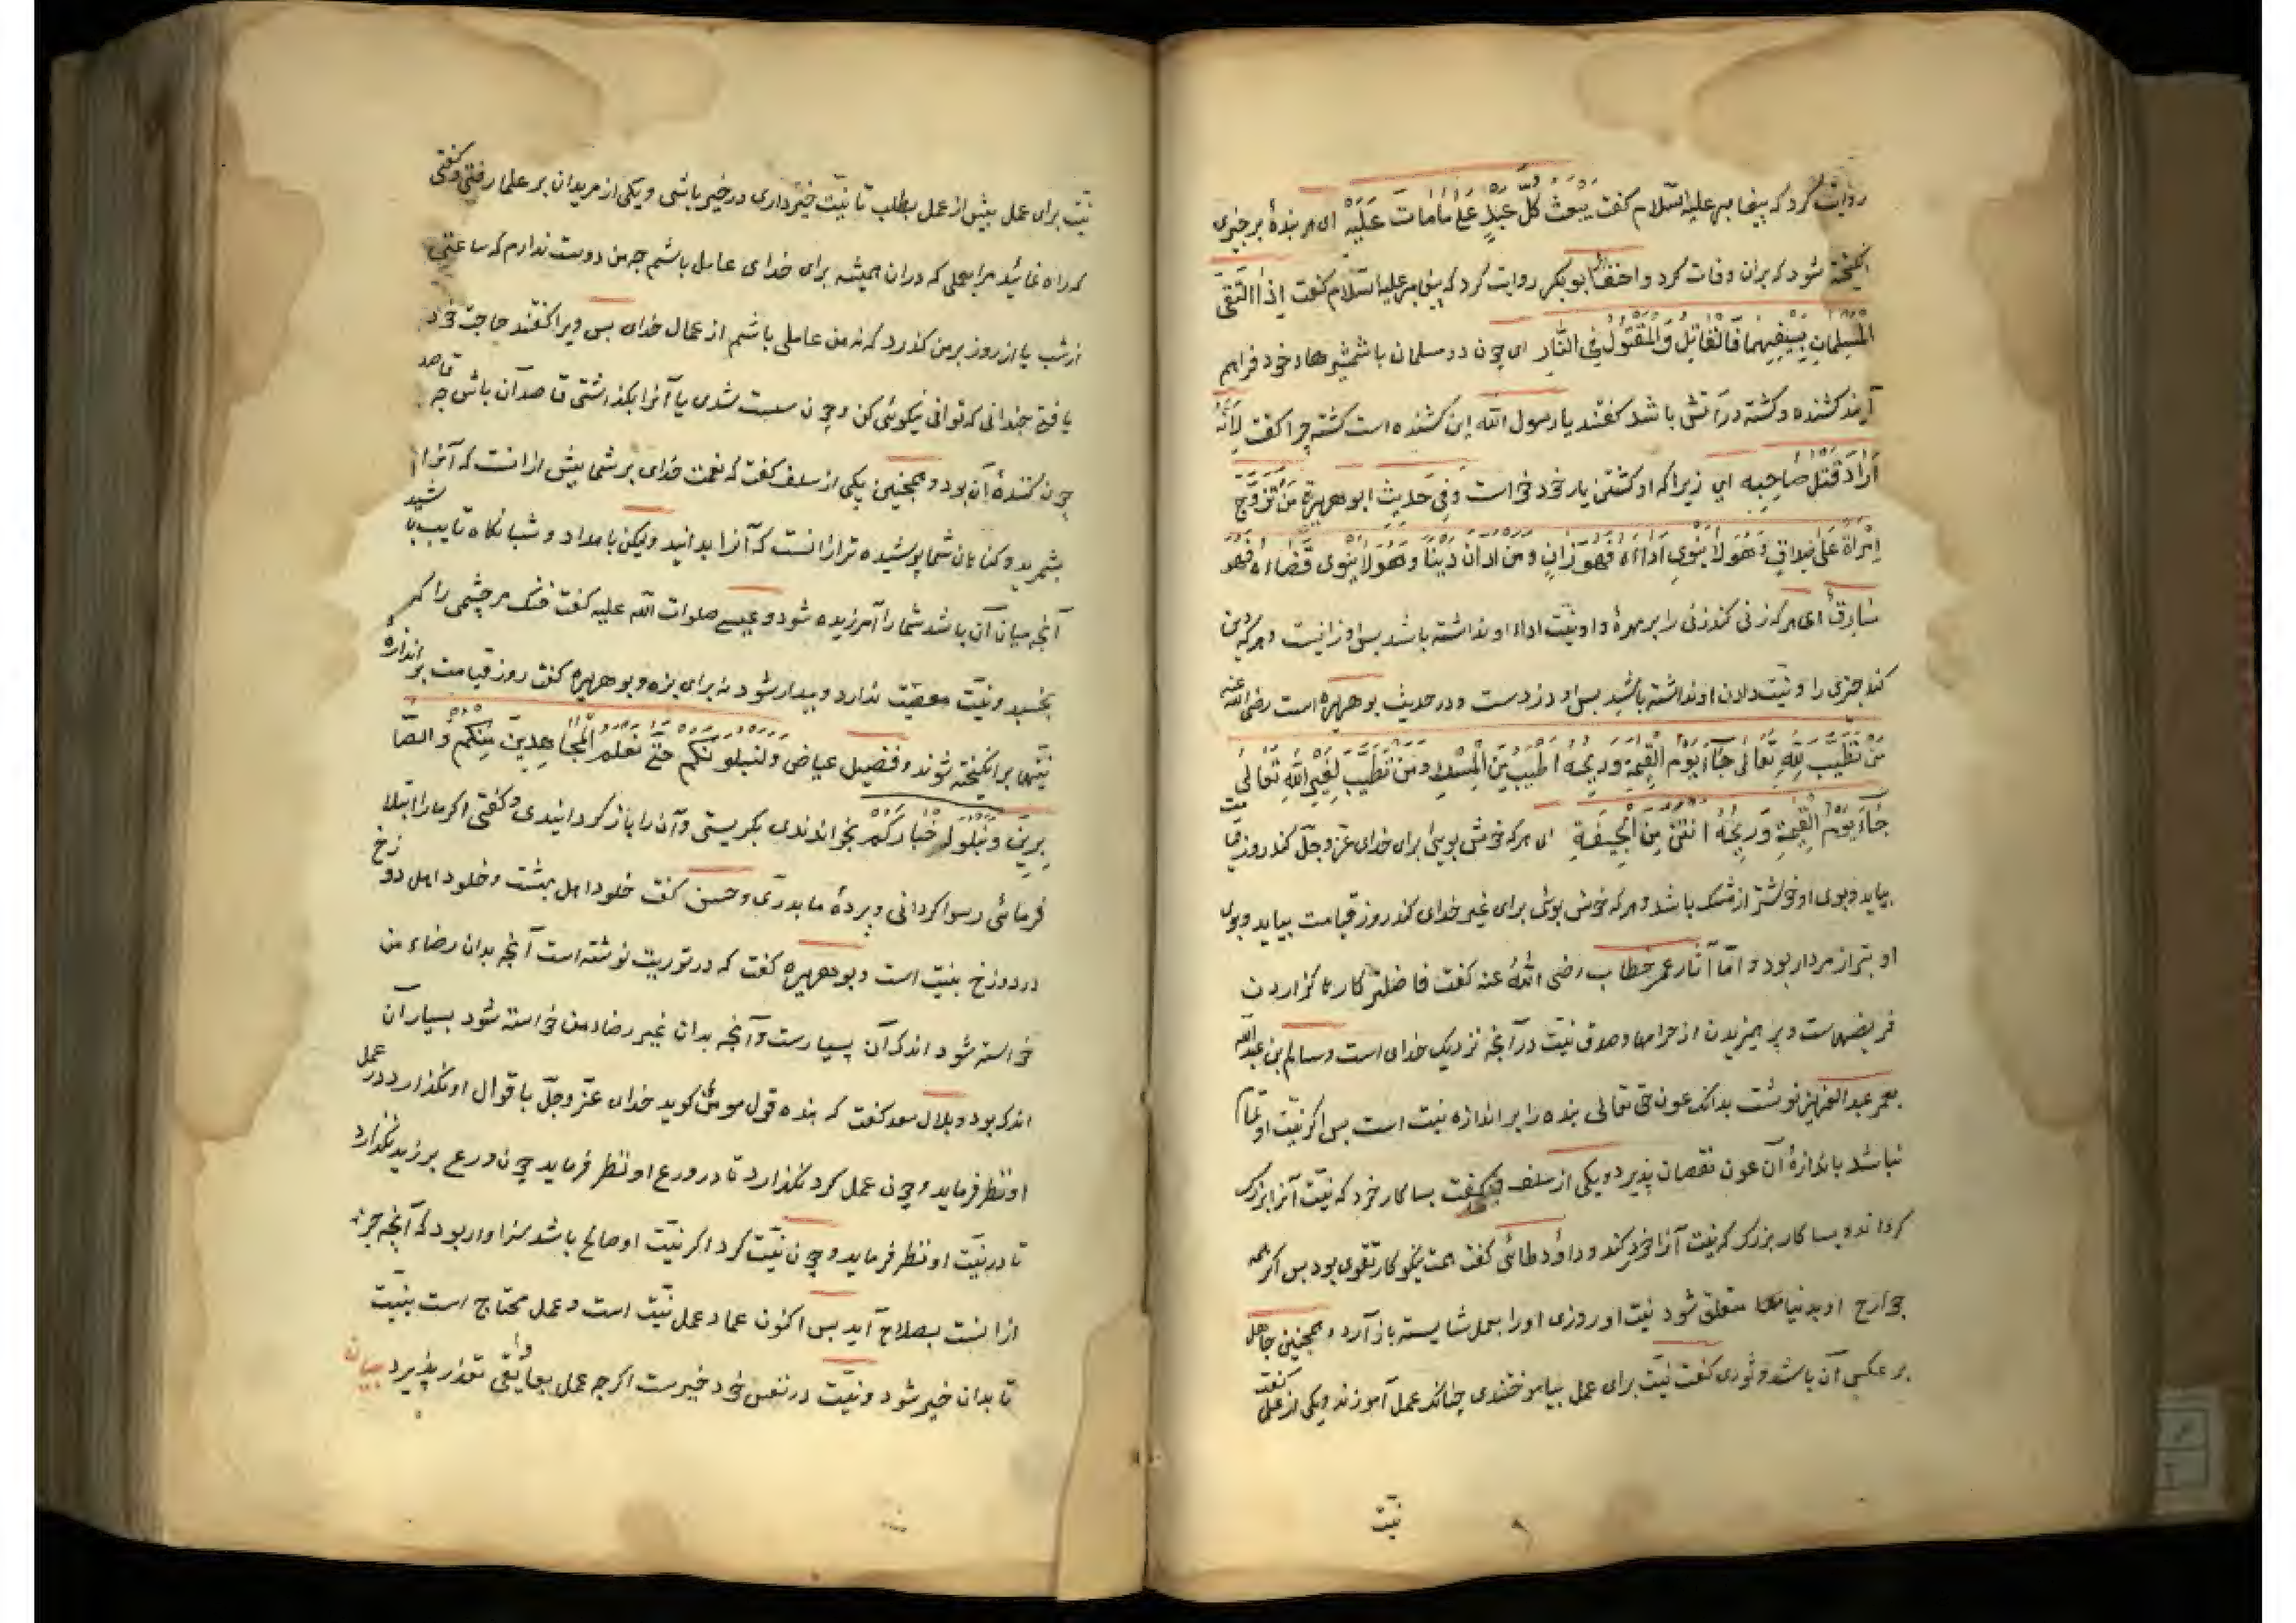 روایت کرد که پیغامبر علیه السلام کفت یبعث کل عبد علی ما مات علیه ای هر بندهٔ بر چیزی
انکیخته شود که بران وفات کرد و احنف ابو بکر روایت کرد که پیغامبر علیه السلام کفت اذا التقی
المسلمان بسیفیهما فالقاتل والمقتول فی النار ای چون دو مسلمان با شمشیرهاء خود فراهم
آیند کشنده و کشته در آتش باشد کفتند یا رسول الله این کشنده است کشته چرا کفت لانه
اراد قتل صاحبه ای زیرا که او کشتن یار خود خواست وفی حدیث ابو هریرة من تزوج
امرأة علی صداق وهو لا ینوی اداءه فهو زان ومن ادان دینا وهو لا ینوی قضاءه فهو
سارق ای هر که زنی کند زنی را بر مهرهٔ و او نیت اداء او نداشته باشد پس او زانیست و هر که دین
کند چیزی را و نیت دادن او نداشته باشد پس او دزدست و در حدیث بو هریره است رضی الله عنه
من تطیب لله تعالی جاء یوم القیمة وریحه اطیب من المسک ومن تطیب لغیر الله تعالی
جاء یوم القیمة وریحه انتن من الجیفة ای هر که خوش بویی برای خدای عز وجل کند روز قیامت
بیاید و بوی او خوشتر از مشک باشد و هر که خوش بوئی برای غیر خدای کند روز قیامت بیاید و بوی
او بتر از مردار بود و اما آثار عمر خطاب رضی الله عنه کفت فاضلتر کارها کزاردن
فریضهاست و پرهیزیدن از حرامها و صدق نیت در آنچه نزدیک خدای است و سالم بن عبدالله
بعمر عبد العزیز نوشت بدانک عون حق تعالی بنده را بر اندازه نیت است پس اکر نیت او تمام
نباشد باندازهٔ آن عون نقصان پذیرد و یکی از سلف کفت بسا کار خرد که نیت آنرا بزرک
کرداند و بسا کار بزرک که نیت آنرا خرد کند و داؤد طائی کفت همت نیکو کار تقوی بود پس اکر همه
جوارح او بدنیا متعلق شود نیت او روزی او را بعمل شایسته باز آرد و همچنین جاهل
بر عکس آن باشد و ثوری کفت نیت برای عمل بیاموختندی چنانک عمل آموزند و یکی از علما کفت
نیت
۹
نیت برای عمل پیش از عمل بطلب تا نیت خیر داری در خیر باشی و یکی از مریدان بر علما رفتی و کفتی
که راه نمائید مرا بعملی که دران همیشه برای خدای عامل باشم چه من دوست ندارم که ساعتی
از شب یا از روز بر من کذرد که نه من عاملی باشم از عمال خدای پس ویرا کفتند حاجت خود
یافتی چندانی که توانی نیکوئی کن و چون سست شدی یا آنرا بکذاشتی قاصد آن باش چه قاصد
چون کنندهٔ آن بود و همچنین یکی از سلف کفت که نعمت خدای بر شما بیش ازانست که آنرا
بشمرید و کناهان شما پوشیده تر ازانست که آنرا بدانید ولیکن بامداد و شبانکاه تایب باشید
آنچه میان آن باشد شما را آمرزیده شود و عیسی صلوات الله علیه کفت خنک مر چشمی را که
بخسبد و نیت معصیت ندارد و بیدار شود نه برای بزه و بو هریره کفت روز قیامت بر اندازهٔ
نیتها برانکیخته شوند و فضیل عیاض ولنبلونکم حتی نعلم المجاهدین منکم والصا
برین ونبلو اخبارکم بخواندی بکریستی و آن را باز کردانیدی و کفتی اکر ما را ابتلا
فرمائی رسوا کردانی و پردهٔ ما بدری و حسن کفت خلود اهل بهشت و خلود اهل دوزخ
در دوزخ بنیت است و بو هریره کفت که در توریت نوشته است آنچه بدان رضاء من
خواسته شود اندک آن بسیارست و آنچه بدان غیر رضاء من خواسته شود بسیار آن
اندک بود و بلال سعد کفت که بنده قول مومن کوید خدای عز وجل با قوال او نکذارد در عمل
او نظر فرماید و چون عمل کرد نکذارد تا در ورع او نظر فرماید چون ورع برزید نکذارد
تا در نیت او نظر فرماید و چون نیت کرد اکر نیت او صالح باشد سزاوار بود که آنچه جز
ازانست بصلاح آید پس اکنون عماد عمل نیت است و عمل محتاج است بنیت
تا بدان خیر شود و نیت در نفس خود خیرست اکرچه عمل بعوایقی تعذر پذیرد بیان